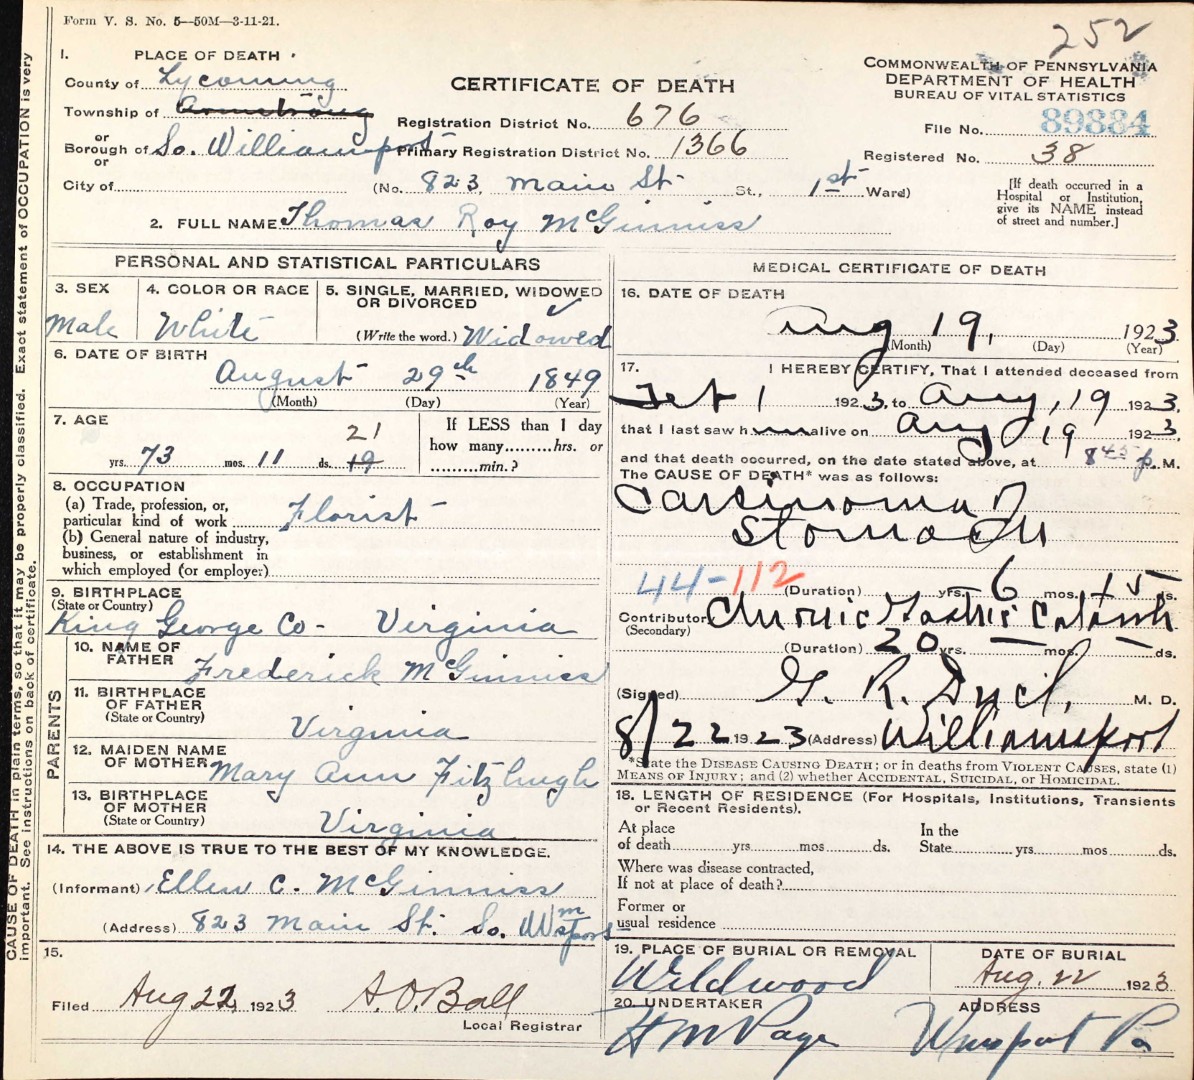 Form V. S. No. 5—50M—3-11-21.
252
1. PLACE OF DEATH
County of Lycoming
Township of Armstrong
or
Borough of So. Williamsport
or
City of
CERTIFICATE OF DEATH
Registration District No. 676
Primary Registration District No. 1366
(No. 823 Main St. St., 1st Ward)
COMMONWEALTH OF PENNSYLVANIA
DEPARTMENT OF HEALTH
BUREAU OF VITAL STATISTICS
File No. 89884
Registered No. 38
[If death occurred in a
Hospital or Institution,
give its NAME instead
of street and number.]
2. FULL NAME Thomas Roy McGinniss
PERSONAL AND STATISTICAL PARTICULARS
3. SEX
Male
4. COLOR OR RACE
White
5. SINGLE, MARRIED, WIDOWED
OR DIVORCED
(Write the word.) Widowed
6. DATE OF BIRTH
August 29th 1849
(Month) (Day) (Year)
7. AGE
21
yrs. 73 mos. 11 ds. 19
If LESS than 1 day
how many.........hrs. or
.........min.?
8. OCCUPATION
(a) Trade, profession, or,
particular kind of work Florist
(b) General nature of industry,
business, or establishment in
which employed (or employer)
9. BIRTHPLACE
(State or Country)
King George Co - Virginia
PARENTS
10. NAME OF
FATHER Frederick McGinniss
11. BIRTHPLACE
OF FATHER
(State or Country)
Virginia
12. MAIDEN NAME
OF MOTHER Mary Ann Fitzhugh
13. BIRTHPLACE
OF MOTHER
(State or Country)
Virginia
14. THE ABOVE IS TRUE TO THE BEST OF MY KNOWLEDGE.
(Informant) Ellen C. McGinniss
(Address) 823 Main St. So. Wmsport
15.
Filed Aug 22, 1923 A.O. Ball
Local Registrar
MEDICAL CERTIFICATE OF DEATH
16. DATE OF DEATH
Aug 19, 1923
(Month) (Day) (Year)
17. I HEREBY CERTIFY, That I attended deceased from
Feb 1 1923, to Aug, 19 1923,
that I last saw him alive on Aug 19 1923,
and that death occurred, on the date stated above, at 8 45 p. M.
The CAUSE OF DEATH* was as follows:
Carcinoma of
Stomach
44-112
(Duration) yrs. 6 mos. 15 ds.
Contributory Chronic Gastric Catarrh
(Secondary)
(Duration) 20 yrs. — mos. — ds.
(Signed) G. R. M. D.
8/22 1923 (Address) Williamsport
*State the DISEASE CAUSING DEATH; or in deaths from VIOLENT CAUSES, state (1)
MEANS OF INJURY; and (2) whether ACCIDENTAL, SUICIDAL, or HOMICIDAL.
18. LENGTH OF RESIDENCE (For Hospitals, Institutions, Transients
or Recent Residents).
At place
of death yrs. mos. ds.
In the
State yrs. mos. ds.
Where was disease contracted,
If not at place of death?
Former or
usual residence
19. PLACE OF BURIAL OR REMOVAL
Wildwood
DATE OF BURIAL
Aug. 22 1923
20. UNDERTAKER
H M Page
ADDRESS
Wmsport Pa
CAUSE OF DEATH in plain terms, so that it may be properly classified. Exact statement of OCCUPATION is very
important. See instructions on back of certificate.